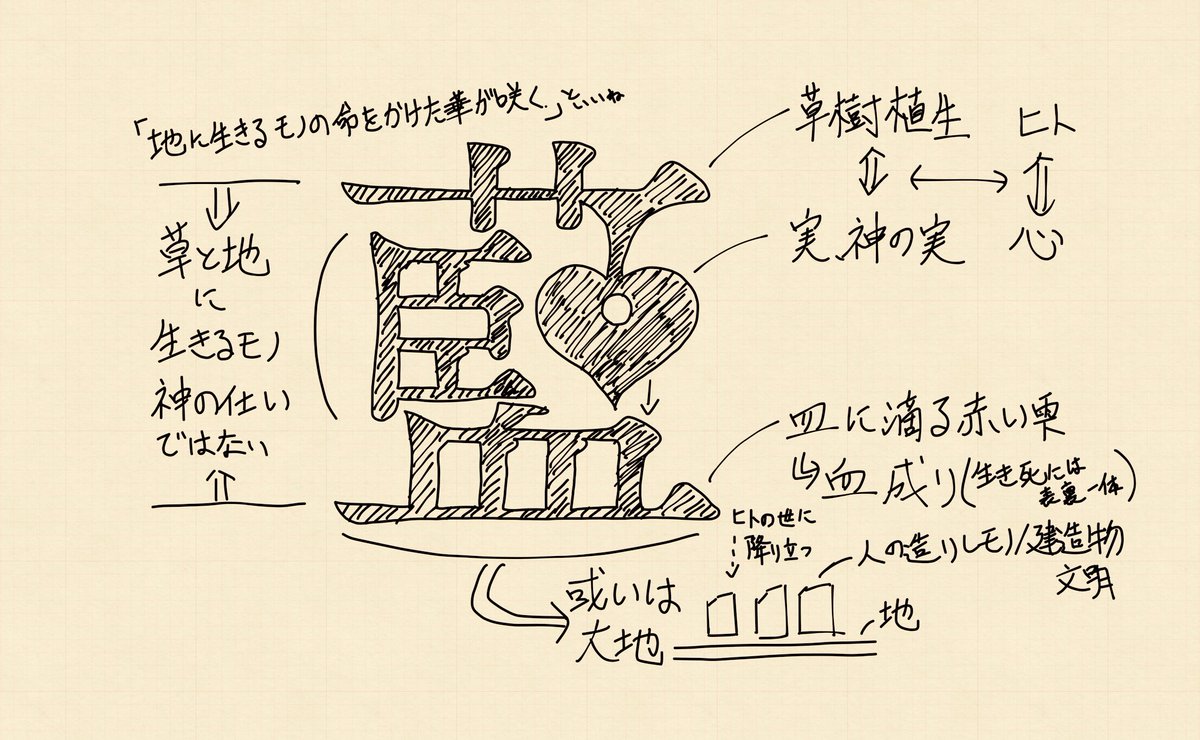 「地に生きるモノの命をかけた華が咲く」といいね
草と地
に
生きるモノ
神の仕い
ではない
草樹植生
ヒト
実、神の実
心
皿に滴る赤い雫
血成り(生き死には
表裏一体)
ヒトの世に
降り立つ
人の造りしモノ/建造物
文明
或いは
大地
地